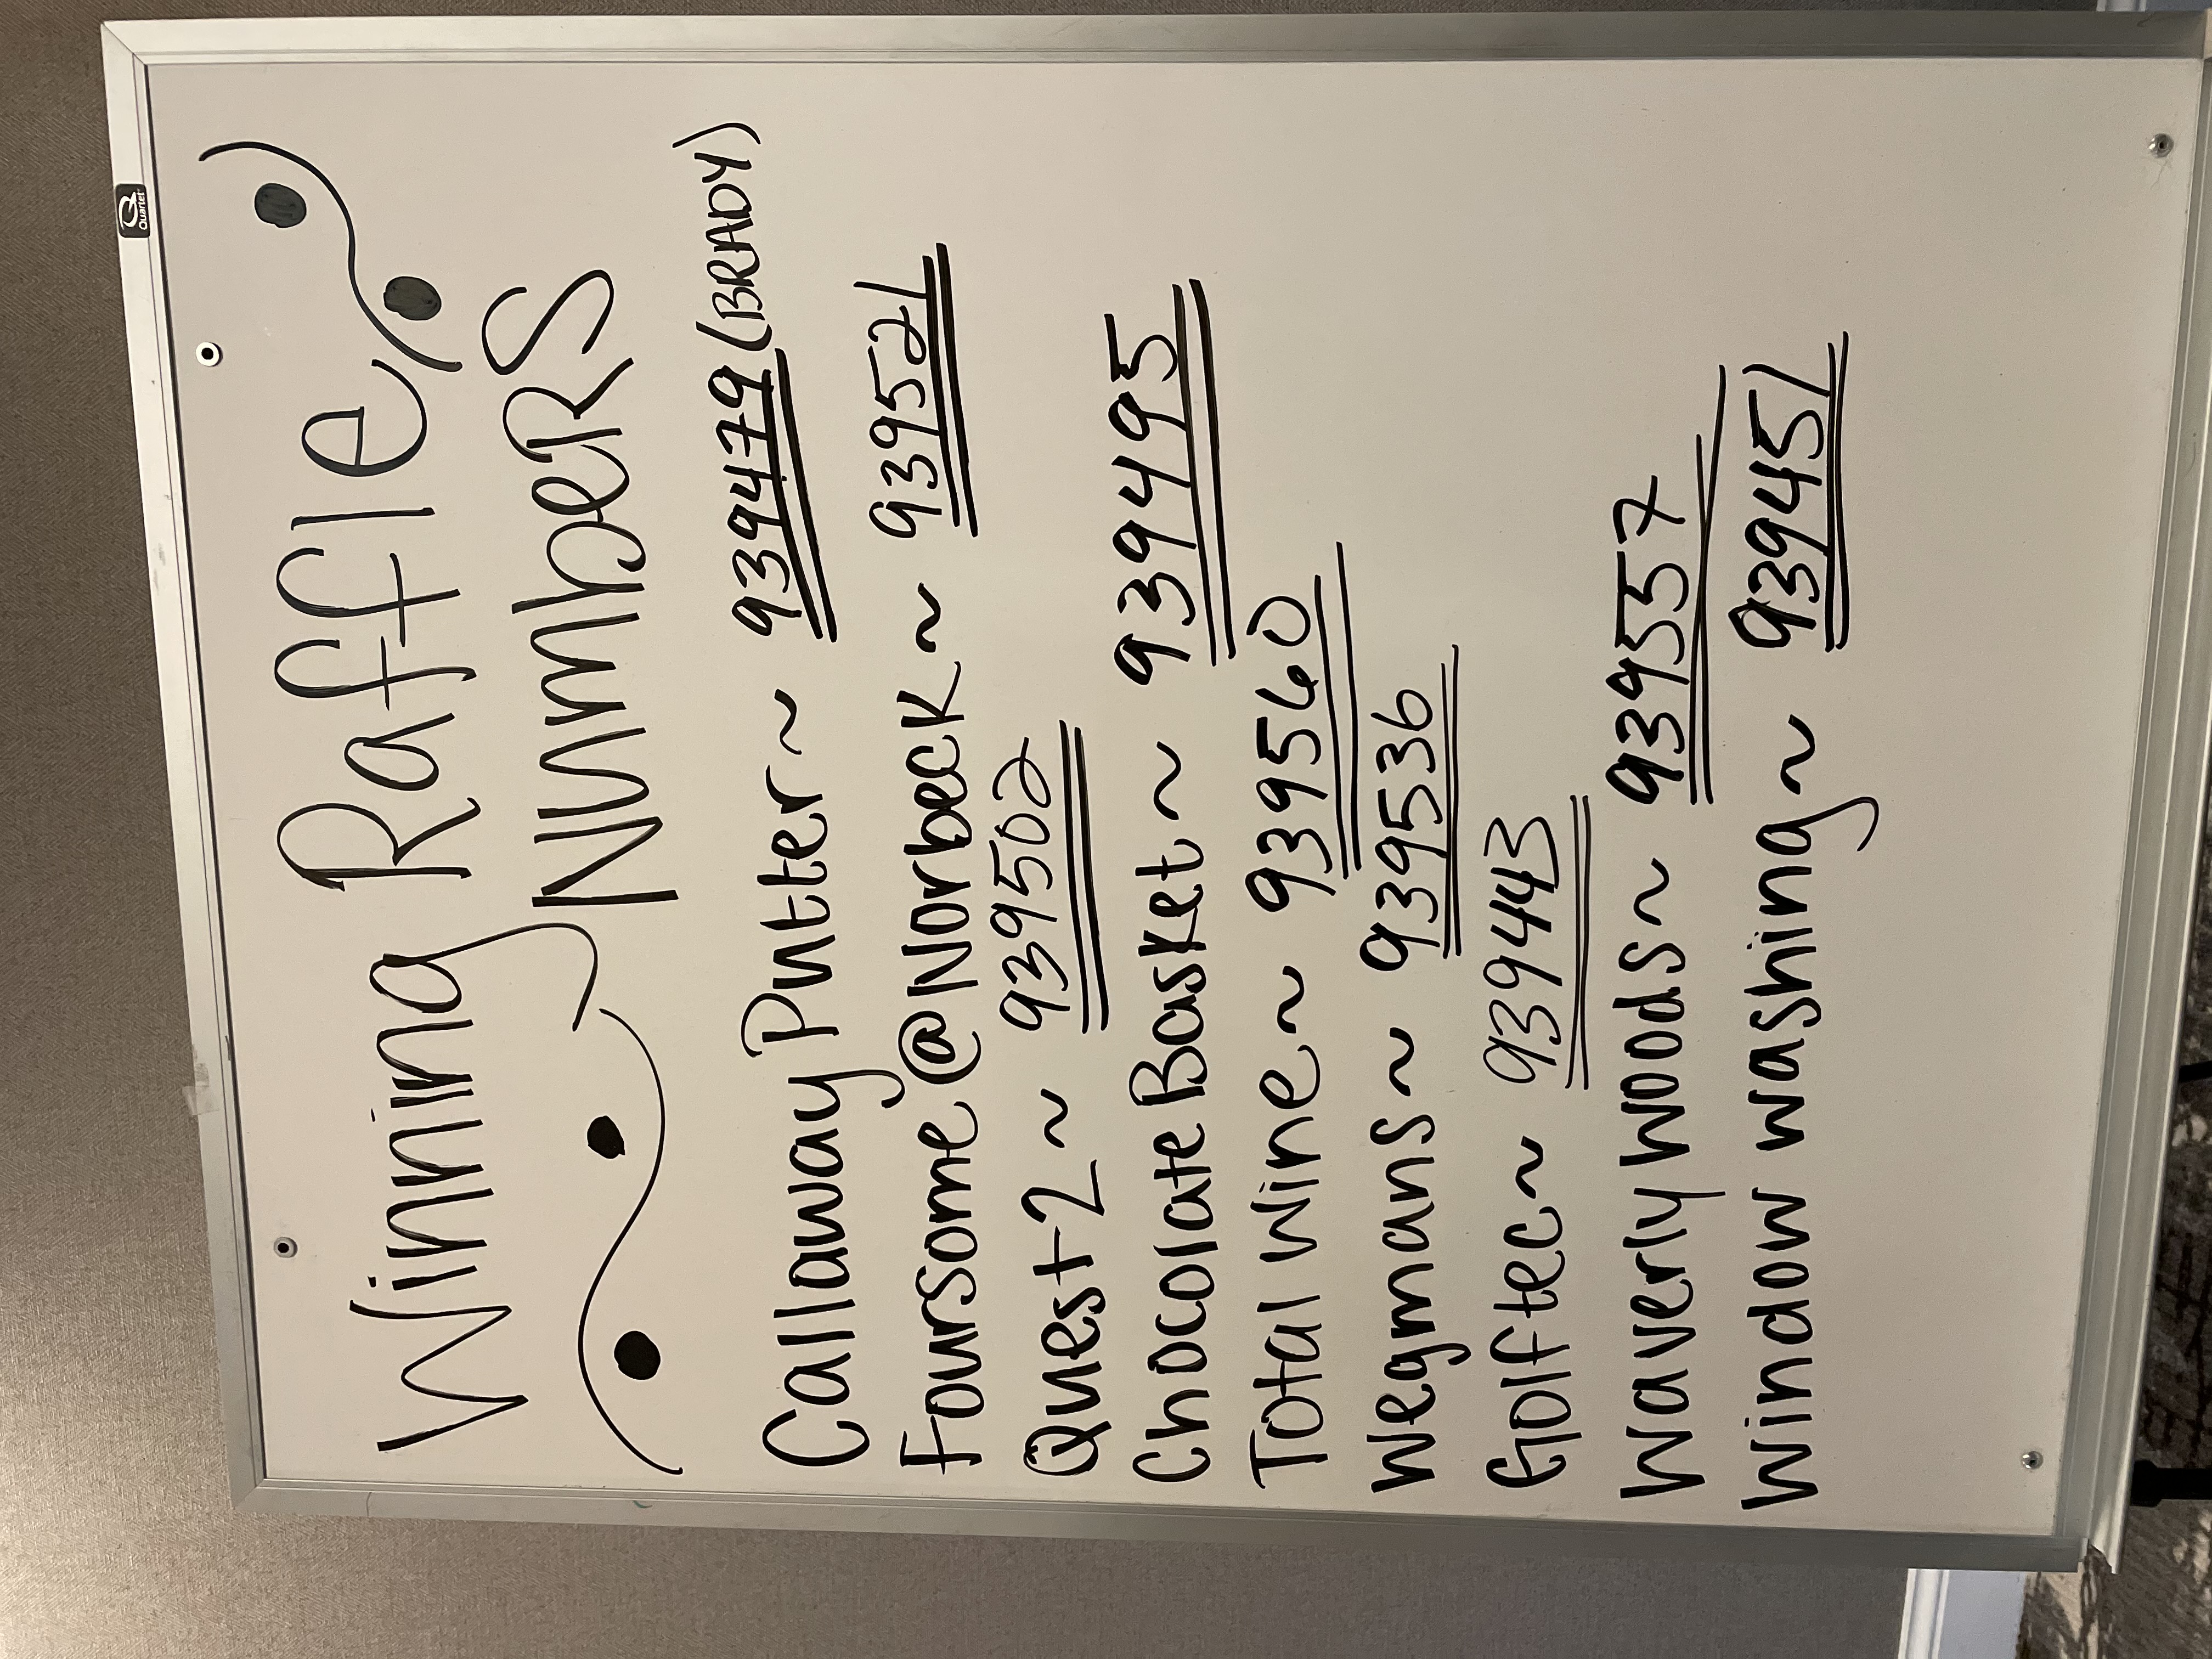 Winning Raffle
NUmbeRS
Callaway Putter ~ 939479 (BRADY)
Foursome @ Norbeck ~ 939521
Quest 2 ~ 939502
Chocolate Basket ~ 939495
Total Wine ~ 939560
Wegmans ~ 939536
Golftec ~ 939443
Waverly Woods ~ 939557
Window washing ~ 939451
Quartet